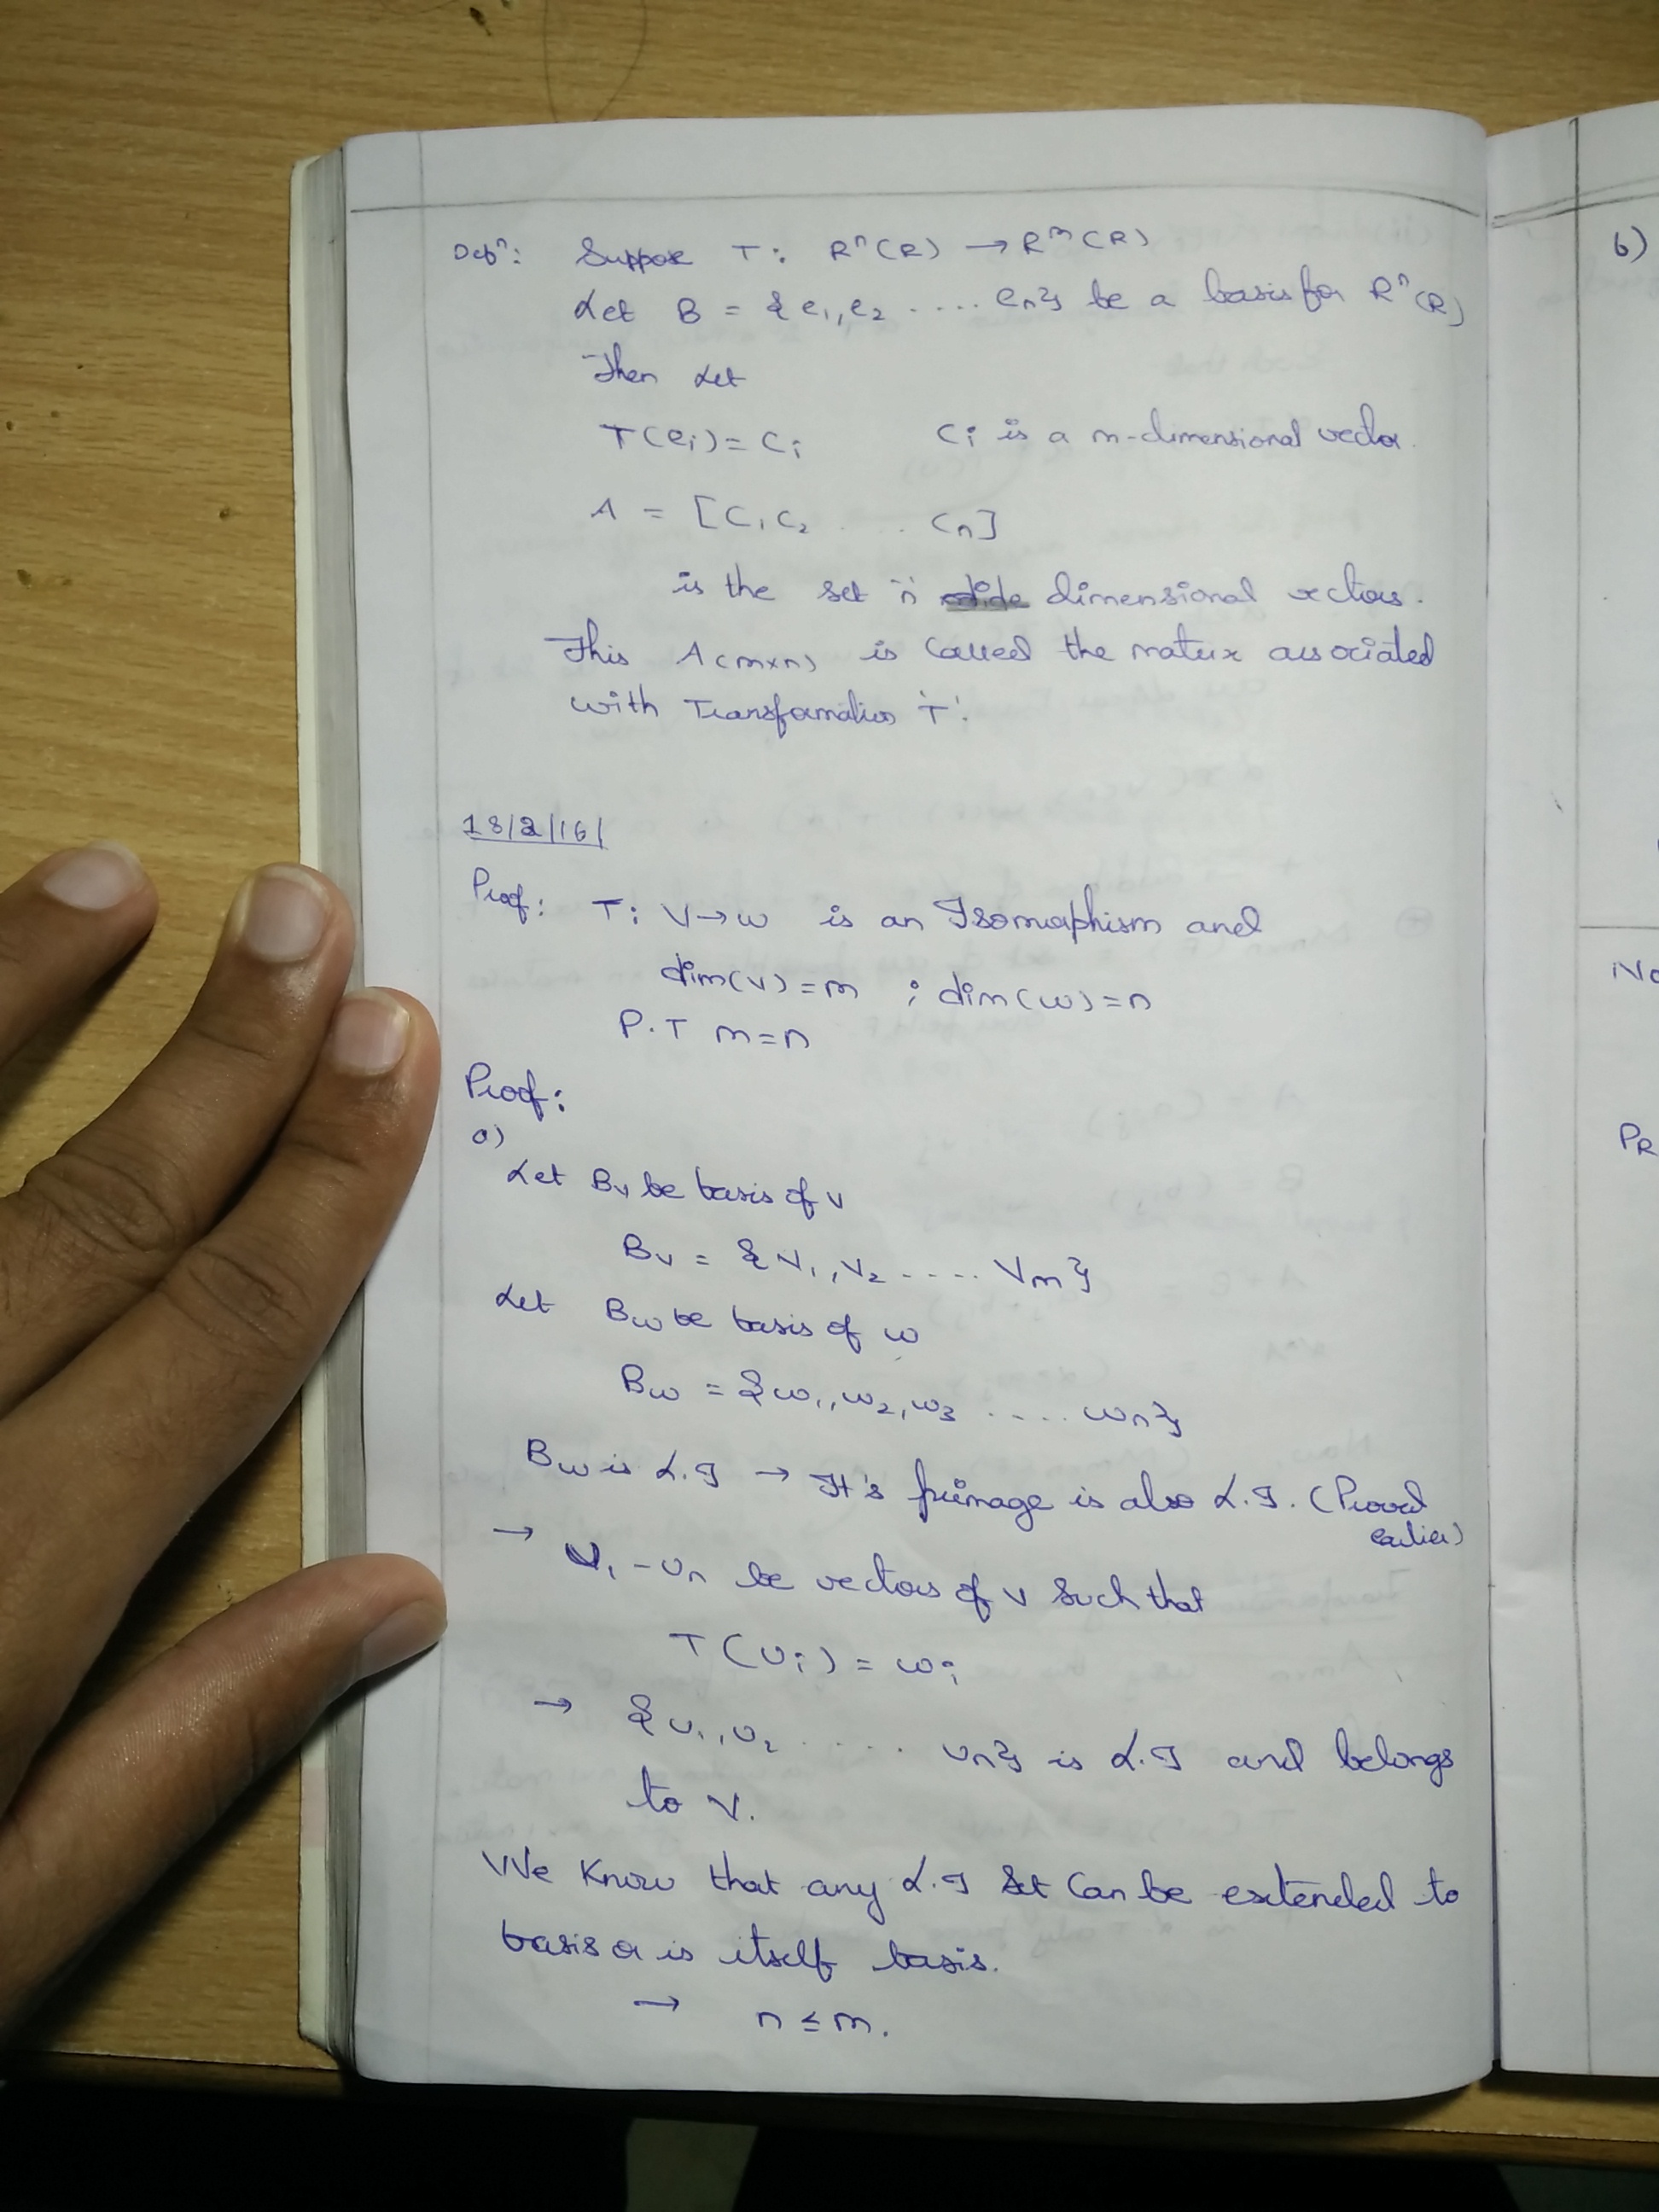 Defⁿ: Suppose T: Rⁿ(R) → Rᵐ(R)
Let B = {e₁,e₂ .... eₙ} be a basis for Rⁿ(R)
Then Let
T(eᵢ) = Cᵢ Cᵢ is a m-dimensional vector.
A = [C₁ C₂ .... Cₙ]
is the set 'n' dimensional vectors.
This A(m×n) is called the matrix associated
with Transformation 'T'.
18/2/16/
Proof: T: V→W is an Isomorphism and
dim(V)=m ; dim(W)=n
P.T m=n
Proof:
a)
Let Bᵥ be basis of V
Bᵥ = {V₁,V₂ .... Vm}
Let Bw be basis of W
Bw = {w₁,w₂,w₃ .... wₙ}
Bw is L.I → It's primage is also L.I. (Proved
earlier)
→ U₁ - Uₙ be vectors of V Such that
T(Uᵢ) = wᵢ
→ {U₁,U₂ ..... Uₙ} is L.I and belongs
to V.
We Know that any L.I Set Can be extended to
basis or is itself basis.
→ n ≤ m.
b)
No
PR